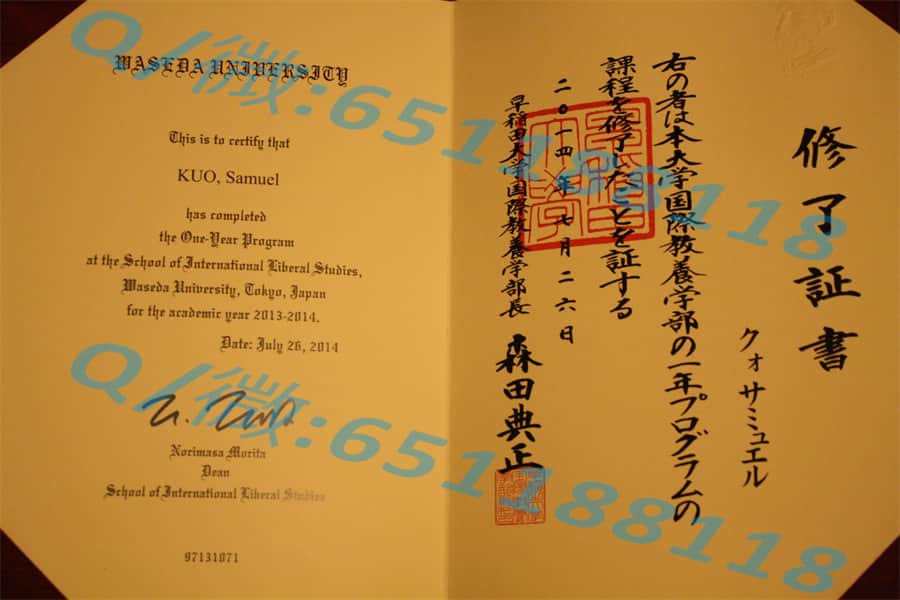 WASEDA UNIVERSITY
This is to certify that
KUO, Samuel
has completed
the One-Year Program
at the School of International Liberal Studies,
Waseda University, Tokyo, Japan
for the academic year 2013-2014.
Date: July 26, 2014
Norimasa Morita
Dean
School of International Liberal Studies
97131071
修了証書
クォサミュエル
右の者は本大学国際教養学部の一年プログラムの
課程を修了したことを証する
二〇一四年七月二六日
早稲田大学国際教養学部長
森田典正
Q/微:651188118
Q/微:651188118